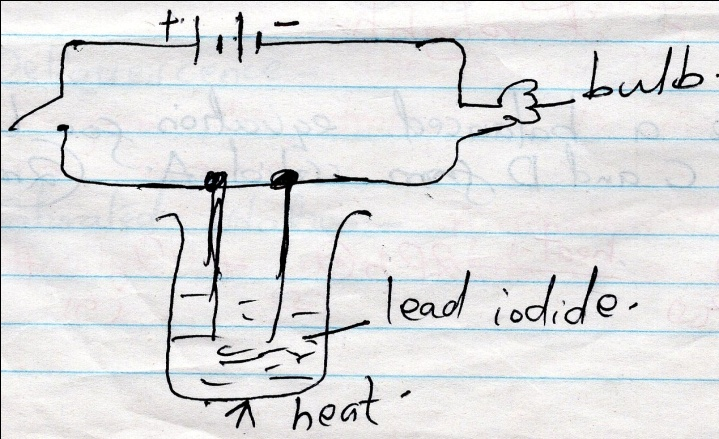 + -
bulb.
lead iodide.
heat.